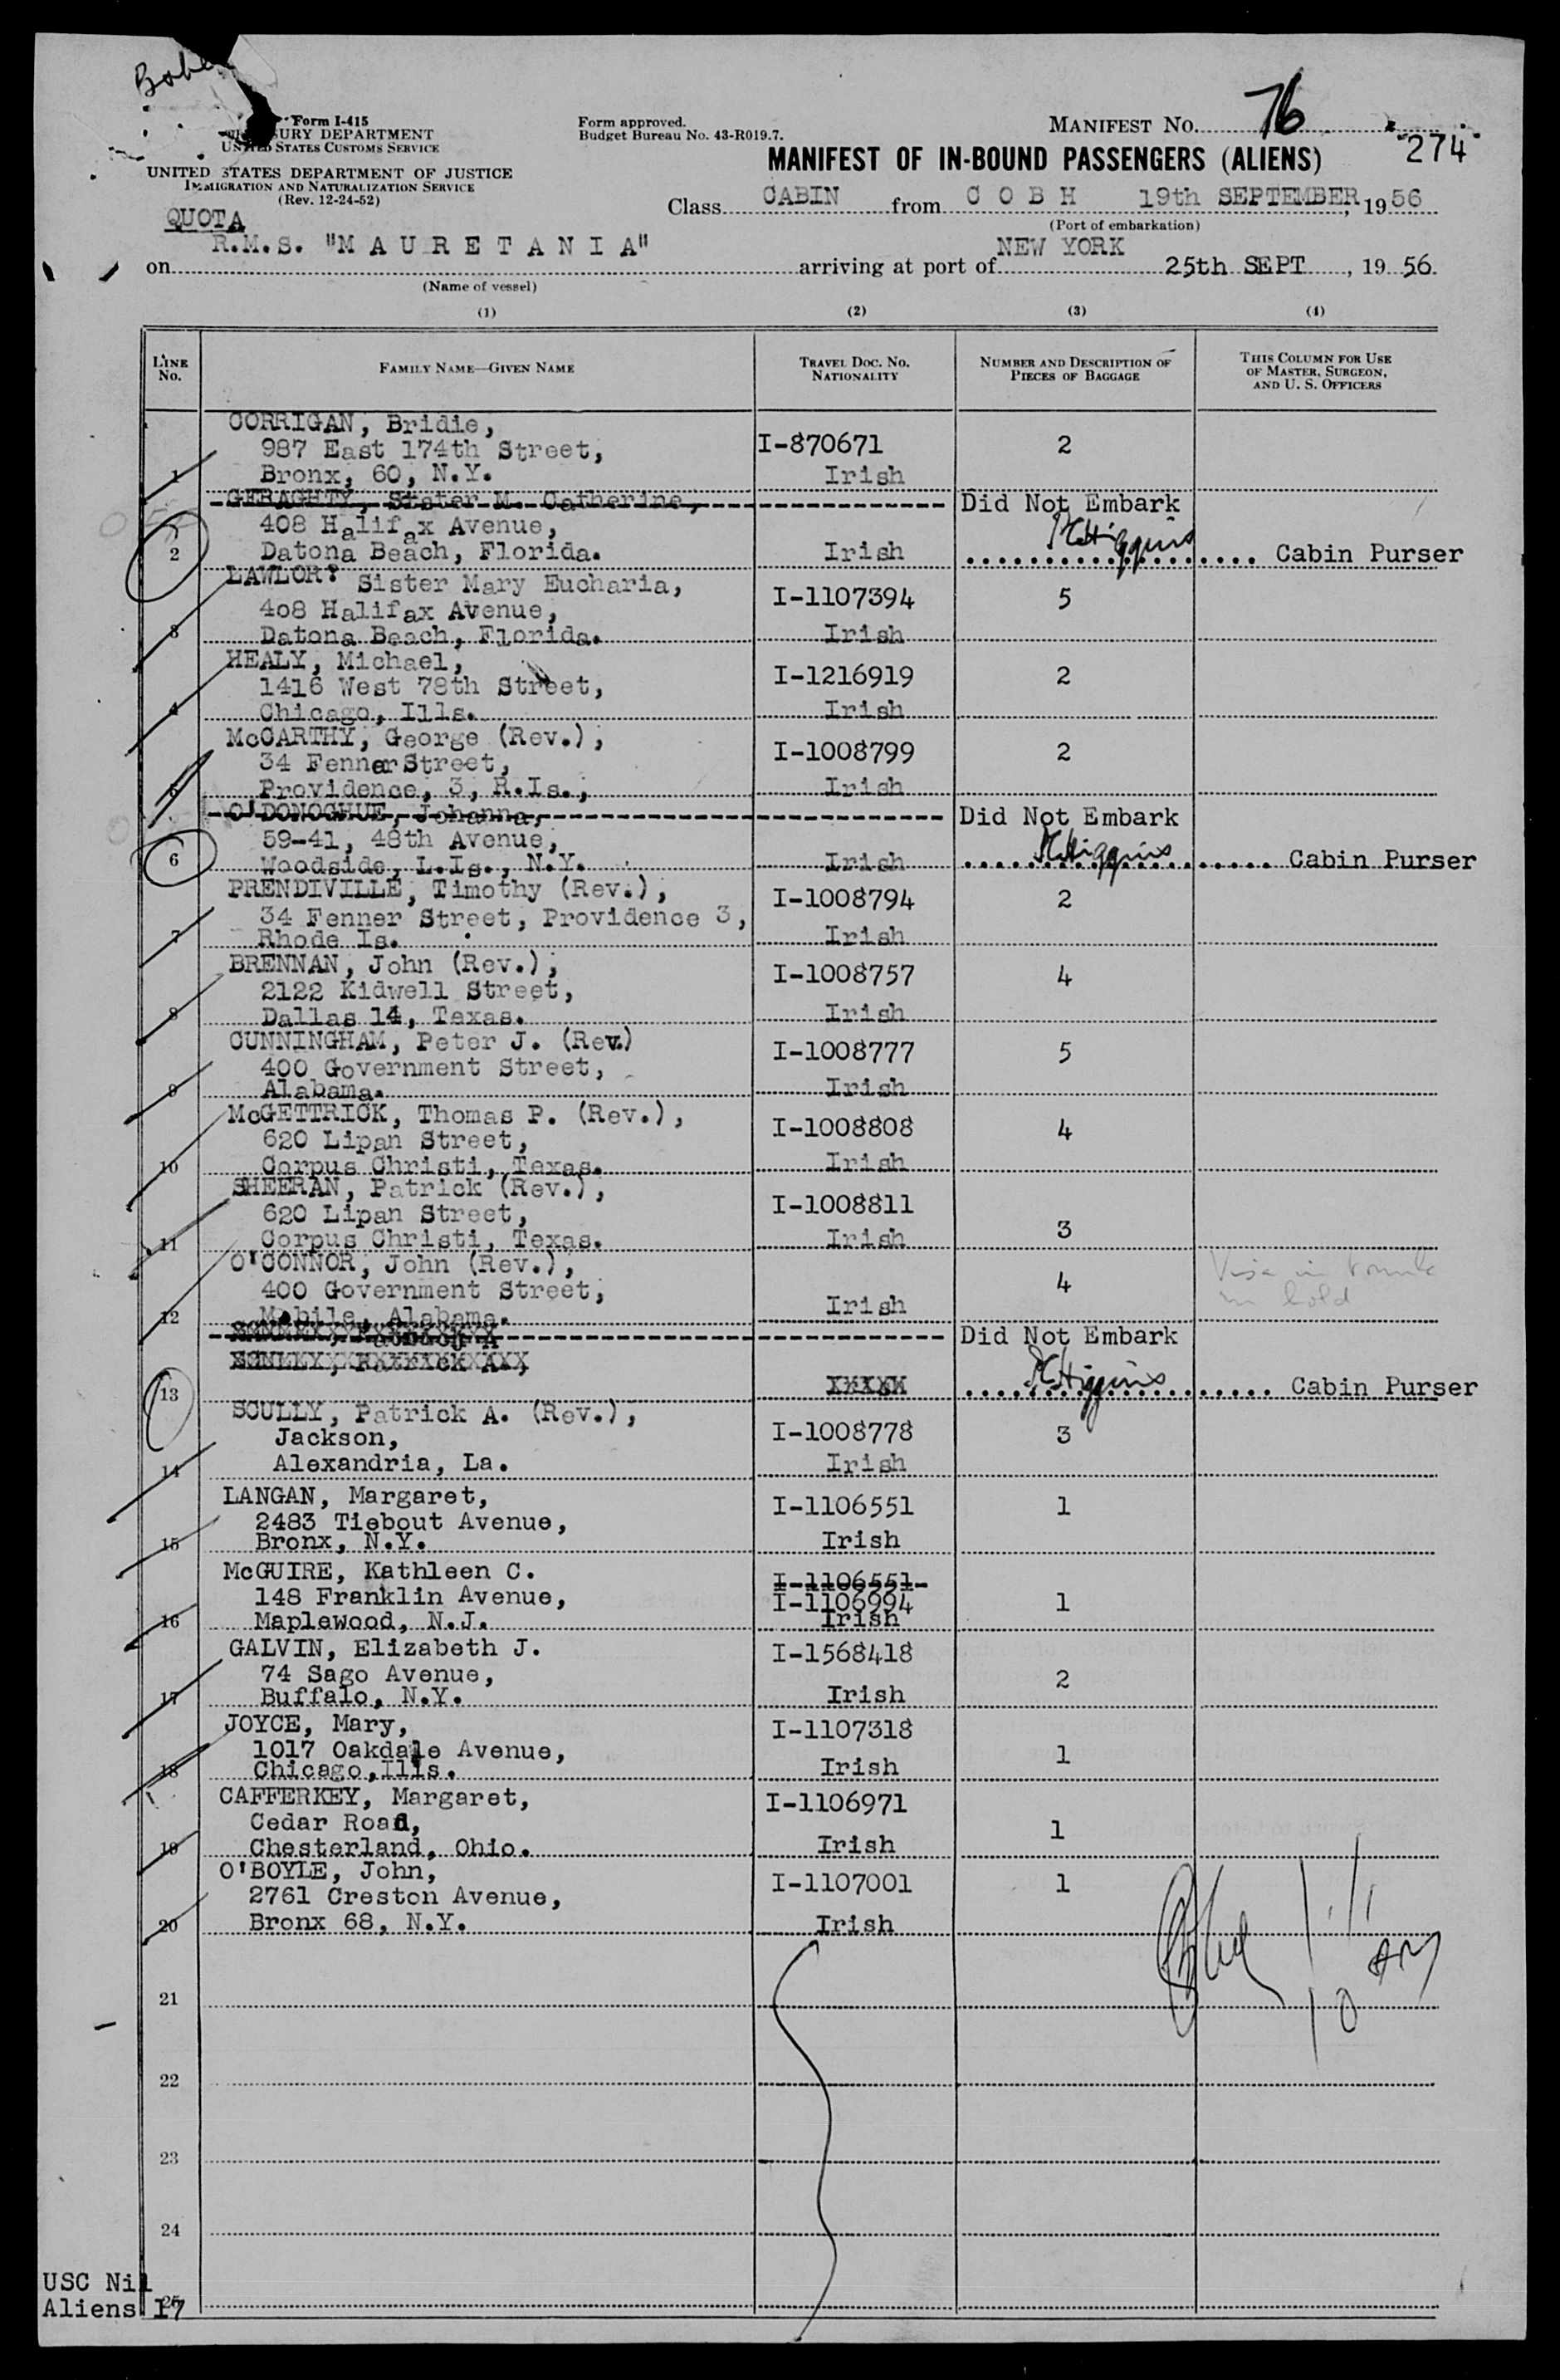 Form I-415
TREASURY DEPARTMENT
UNITED STATES CUSTOMS SERVICE
UNITED STATES DEPARTMENT OF JUSTICE
IMMIGRATION AND NATURALIZATION SERVICE
(Rev. 12-24-52)
Form approved.
Budget Bureau No. 43-R019.7.
MANIFEST NO. 76
274
MANIFEST OF IN-BOUND PASSENGERS (ALIENS)
Class CABIN from C O B H 19th SEPTEMBER, 1956
(Port of embarkation)
QUOTA
on R.M.S. "M A U R E T A N I A" arriving at port of NEW YORK 25th SEPT, 19 56.
(Name of vessel)
(1) (2) (3) (4)
LINE No. FAMILY NAME—GIVEN NAME TRAVEL DOC. NO. NATIONALITY NUMBER AND DESCRIPTION OF PIECES OF BAGGAGE THIS COLUMN FOR USE OF MASTER, SURGEON, AND U. S. OFFICERS
CORRIGAN, Bridie,
987 East 174th Street, I-870671 2
1 Bronx, 60, N.Y. Irish
GERAGHTY, Sister M. Catherine, Did Not Embark
408 Halifax Avenue,
2 Datona Beach, Florida. Irish Cabin Purser
LAWLOR? Sister Mary Eucharia,
408 Halifax Avenue, I-1107394 5
3 Datona Beach, Florida. Irish
HEALY, Michael,
1416 West 78th Street, I-1216919 2
4 Chicago, Ills. Irish
McCARTHY, George (Rev.),
34 Fenner Street, I-1008799 2
5 Providence, 3, R.Is., Irish
O'DONOGHUE, Johanna, Did Not Embark
59-41, 48th Avenue,
6 Woodside, L.Is., N.Y. Irish Cabin Purser
PRENDIVILLE, Timothy (Rev.), I-1008794 2
34 Fenner Street, Providence 3,
7 Rhode Is. Irish
BRENNAN, John (Rev.),
2122 Kidwell Street, I-1008757 4
8 Dallas 14, Texas. Irish
CUNNINGHAM, Peter J. (Rev.) I-1008777 5
400 Government Street,
9 Alabama. Irish
McGETTRICK, Thomas P. (Rev.),
620 Lipan Street, I-1008808 4
10 Corpus Christi, Texas. Irish
SHEERAN, Patrick (Rev.),
620 Lipan Street, I-1008811
11 Corpus Christi, Texas. Irish 3
O'CONNOR, John (Rev.),
400 Government Street, 4 Visa in trunk
12 Mobile, Alabama. Irish in hold
Did Not Embark
13 Cabin Purser
SCULLY, Patrick A. (Rev.),
Jackson, I-1008778 3
14 Alexandria, La. Irish
LANGAN, Margaret, I-1106551 1
2483 Tiebout Avenue,
15 Bronx, N.Y. Irish
McGUIRE, Kathleen C. I-1106551
148 Franklin Avenue, I-1106994 1
16 Maplewood, N.J. Irish
GALVIN, Elizabeth J. I-1568418
74 Sago Avenue, 2
17 Buffalo, N.Y. Irish
JOYCE, Mary, I-1107318
1017 Oakdale Avenue, 1
18 Chicago,Ills. Irish
CAFFERKEY, Margaret, I-1106971
Cedar Road, 1
19 Chesterland, Ohio. Irish
O'BOYLE, John, I-1107001 1
2761 Creston Avenue,
20 Bronx 68, N.Y. Irish
21
22
23
24
USC Nil
25
Aliens 17